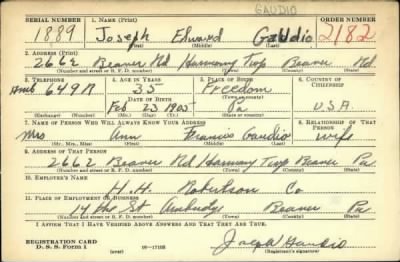 GAUDIO
SERIAL NUMBER 1. NAME (Print) ORDER NUMBER
1889 Joseph Edward Gaudio 2182
(First) (Middle) (Last)
2. ADDRESS (Print)
2662 Beaver Rd Harmony Twp Beaver Pa.
(Number and street or R. F. D. number) (Town) (County) (State)
3. TELEPHONE 4. AGE IN YEARS 5. PLACE OF BIRTH 6. COUNTRY OF CITIZENSHIP
Amb 649R 35 Freedom
DATE OF BIRTH (Town or county)
Feb 23 1905 Pa U.S.A.
(Exchange) (Number) (Mo.) (Day) (Yr.) (State or country)
7. NAME OF PERSON WHO WILL ALWAYS KNOW YOUR ADDRESS 8. RELATIONSHIP OF THAT PERSON
Mrs Ann Francis Gaudio wife
(Mr., Mrs., Miss) (First) (Middle) (Last)
9. ADDRESS OF THAT PERSON
2662 Beaver Rd Harmony Twp Beaver Pa
(Number and street or R. F. D. number) (Town) (County) (State)
10. EMPLOYER'S NAME
H. H. Robertson Co
11. PLACE OF EMPLOYMENT OR BUSINESS
14th St Beaver Pa
(Number and street or R. F. D. number) (Town) (County) (State)
I AFFIRM THAT I HAVE VERIFIED ABOVE ANSWERS AND THAT THEY ARE TRUE.
REGISTRATION CARD
D. S. S. Form 1 (over) 16-17105 Joseph Gaudio
(Registrant's signature)